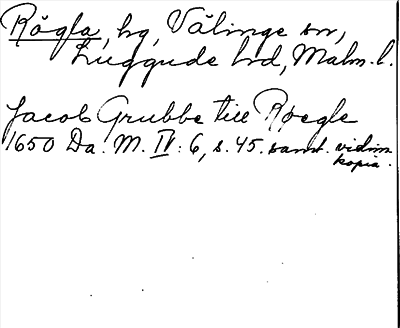 Rögla, hg, Välinge sn,
Luggude hd, Malm. l.
Jacob Grubbe till Røegle
1650 Da. M. IV: 6, s. 45. samt. vidim.
kopia.